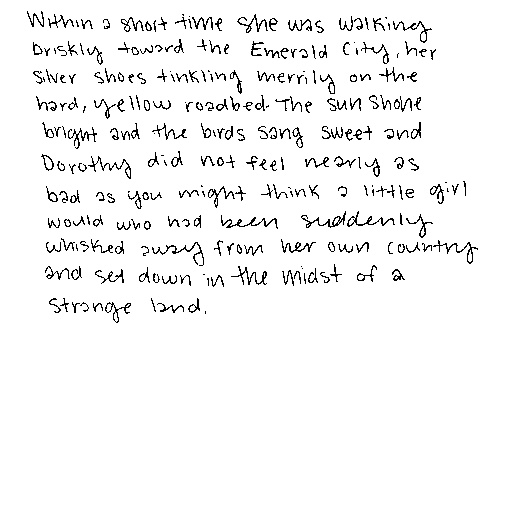 Within a short time she was walking
briskly toward the Emerald City, her
Silver shoes tinkling merrily on the
hard, yellow roadbed. The sun shone
bright and the birds sang sweet and
Dorothy did not feel nearly as
bad as you might think a little girl
would who had been suddenly
whisked away from her own country
and set down in the midst of a
strange land.